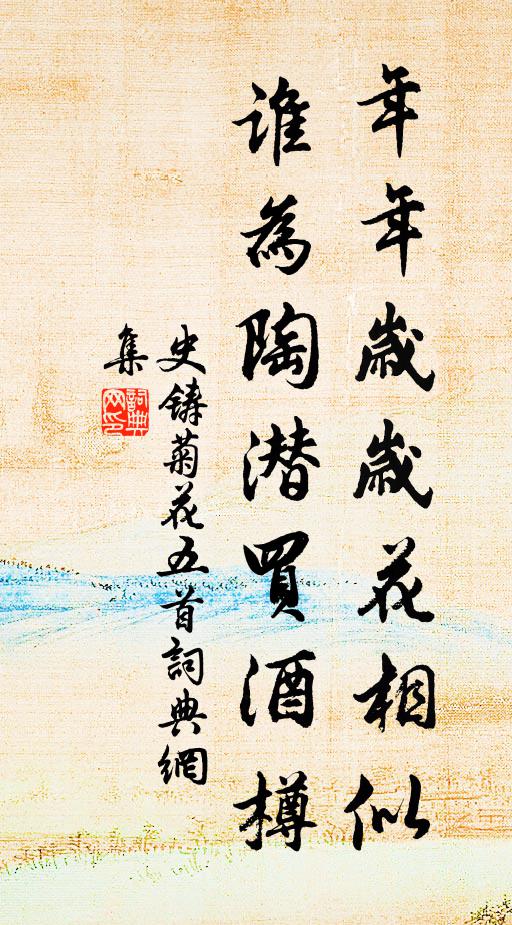 年年歲歲花相似
誰為陶潛買酒樽
史鑄菊花五首詞典網
集
詞典網印